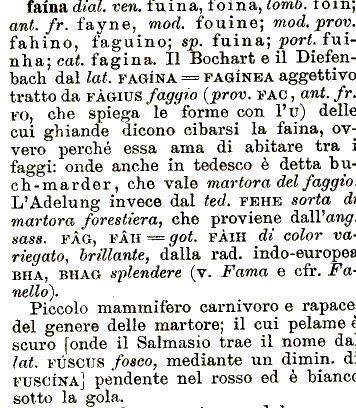 faína dial. ven. fuina, foina, lomb. foin;
ant. fr. fayne, mod. fouine; mod. prov.
fahino, faguino; sp. fuina; port. fui-
nha; cat. fagina. Il Bochart e il Diefen-
bach dal lat. FAGÍNA = FAGÍNEA aggettivo
tratto da FÀGIUS faggio (prov. FAC, ant. fr.
FO, che spiega le forme con l'U) delle
cui ghiande dicono cibarsi la faina, ov-
vero perché essa ama di abitare tra i
faggi: onde anche in tedesco è detta bu-
ch-marder, che vale martora del faggio.
L'Adelung invece dal ted. FEHE sorta di
martora forestiera, che proviene dall'ang.
sass. FÂG, FÂH = got. FÀIH di color va-
riegato, brillante, dalla rad. indo-europea
BHA, BHAG splendere (v. Fama e cfr. Fa-
nello).
Piccolo mammifero carnivoro e rapace
del genere delle martore; il cui pelame è
scuro [onde il Salmasio trae il nome dal
lat. FÚSCUS fosco, mediante un dimin. di
FUSCÍNA] pendente nel rosso ed è bianco
sotto la gola.